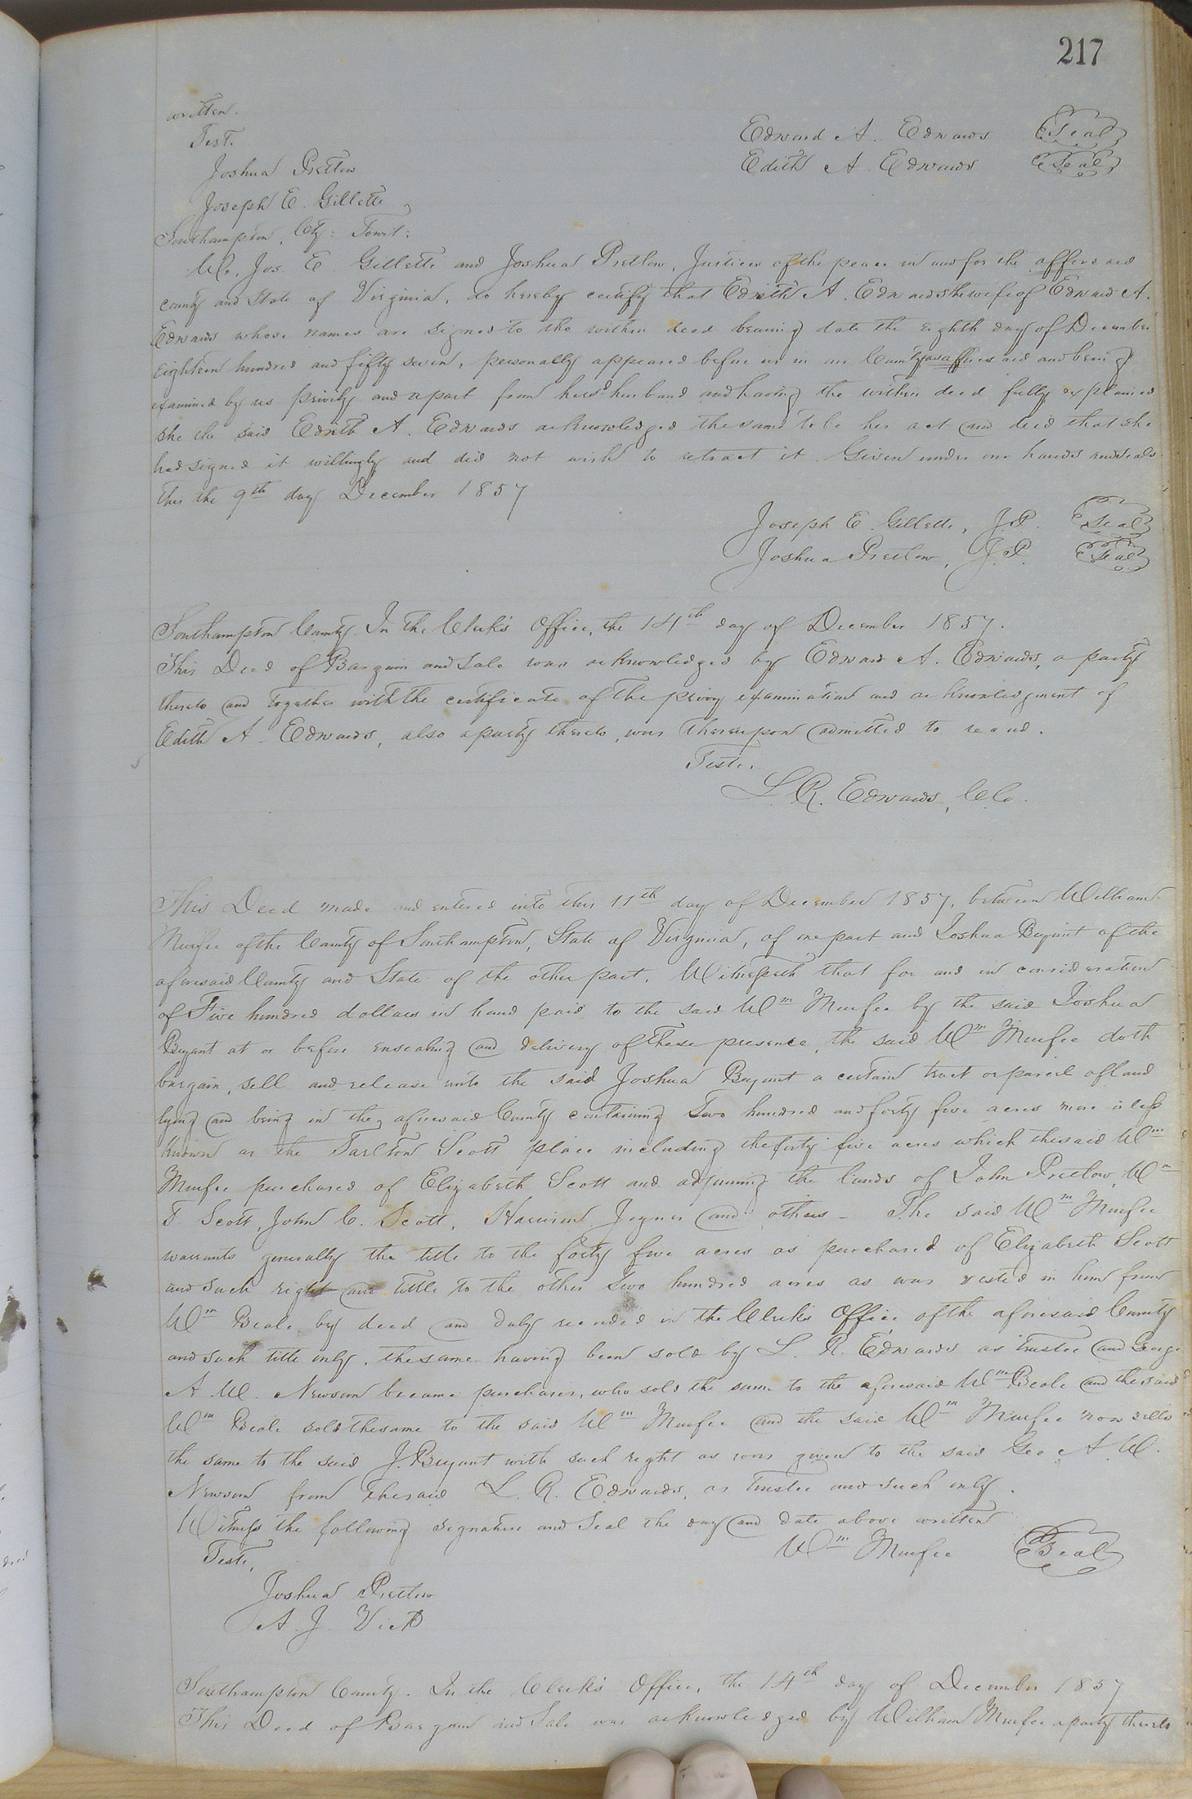 217
written.
Test. Edward A. Edwards Seal
Joshua Pretlow Edith A. Edwards Seal
Joseph E. Gillette
Southampton, Cty: Towit:
We, Jos. E Gillette and Joshua Pretlow, Justices of the peace in and for the afforesaid
county and State of Virginia, do hereby certify that Edith A. Edwards the wife of Edward A.
Edwards whose names are signed to the within deed bearing date the eighth day of December
Eighteen hundred and fifty seven, personally appeared before us in our County as afforesaid and being
examined by us privily and apart from her husband and having the within deed fully explained
she the said Edith A. Edwards acknowledged the same to be her act and deed that she
had signed it willingly and did not wish to retract it. Given under our hands and seals
this the 9th day December 1857
Joseph E. Gillette, J.P. Seal
Joshua Pretlow, J.P. Seal
Southampton County. In the Clerk's Office, the 14th day of December 1857.
This Deed of Bargain and Sale was acknowledged by Edward A. Edwards, a party
thereto and together with the certificate of the privy examination and acknowledgment of
Edith A. Edwards, also a party thereto, was thereupon admitted to record.
Teste.
L. R. Edwards, Clo.
This Deed made and entered into this 11th day of December 1857, between William
Murfee of the County of Southampton, State of Virginia, of one part and Joshua Bryant of the
aforesaid County and State of the other part. Witnesseth that for and in consideration
of Five hundred dollars in hand paid to the said Wm Murfee by the said Joshua
Bryant at or before ensealing and delivery of these presence, the said Wm Murfee doth
bargain, sell and release unto the said Joshua Bryant a certain tract or parcel of land
lying and being in the aforesaid County containing Two hundred and forty five acres more or less
known as the Tarlton Scott place including the forty five acres which the said Wm
Murfee purchased of Elizabeth Scott and adjoining the lands of John Pretlow, Wm
T. Scott, John C. Scott, Harrison Joyner and others - The said Wm Murfee
warrants generally the title to the forty five acres as purchased of Elizabeth Scott
and such right and title to the other two hundred acres as was vested in him from
Wm Beale by deed and duly recorded in the Clerk's Office of the aforesaid County
and such title only, the same having been sold by L. R. Edwards as Trustee and George
A. W. Newsom became purchaser, who sold the same to the aforesaid Wm Beale and the said
Wm Beale sold the same to the said Wm Murfee and the said Wm Murfee now sells
the same to the said J. Bryant with such right as was given to the said Geo. A. W.
Newsom from the said L. R. Edwards, as Trustee and such only.
Witness the following signature and Seal the day and date above written
Teste, Wm Murfee Seal
Joshua Pretlow
A. J. Vick
Southampton County. In the Clerk's Office, the 14th day of December 1857
This Deed of Bargain and Sale was acknowledged by William Murfee a party thereto